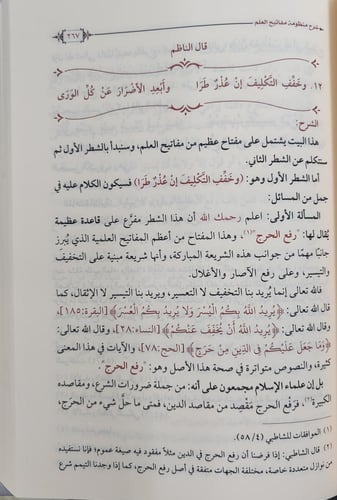 شرح منظومة مفاتيح العلم
٢٦٧
قال الناظم
١٢. وخَفْفِ التَّكْلِيفَ إنْ عُذْرٌ طَرَا وأَبْعِدِ الأَضْرَارَ عَنْ كُلِّ الوَرَى
الشرح:
هذا البيت يشتمل على مفتاح عظيم من مفاتيح العلم، وسنبدأ بالشطر الأول ثم
ستكلم عن الشطر الثاني.
أما الشطر الأول وهو: (وخَفْفِ التَّكْلِيفَ إنْ عُذْرٌ طَرَا) فسيكون الكلام عليه في
جمل من المسائل:
المسألة الأولى: اعلم رحمك الله أن هذا الشطر مفرَّع على قاعدة عظيمة
يُقال لها: "رفع الحرج"(١)، وهذا المفتاح من أعظم المفاتيح العلمية الذي يُبرِز
جانبًا مهمًا من جوانب هذه الشريعة المباركة، وأنها شريعة مبنية على التخفيف
والتيسير، وعلى رفع الآصار والأغلال.
فالله تعالى إنما يُريد بنا التخفيف لا التعسير، ويريد بنا التيسير لا الإثقال، كما
قال الله تعالى: ﴿يُرِيدُ اللَّهُ بِكُمُ الْيُسْرَ وَلَا يُرِيدُ بِكُمُ الْعُسْرَ﴾[البقرة:١٨٥]،
وقال الله تعالى: ﴿يُرِيدُ اللَّهُ أَن يُخَفِّفَ عَنكُمْ﴾[النساء:٢٨]، وقال الله تعالى:
﴿وَمَا جَعَلَ عَلَيْكُمْ فِي الدِّينِ مِنْ حَرَجٍ﴾[الحج:٧٨]، والآيات في هذا المعنى
كثيرة، والنصوص متواترة في صحة هذا الأصل وهو: "رفع الحرج".
بل إن علماء الإسلام مجمعون على أنه: من جملة ضرورات الشرع، ومقاصده
الكبيرة(٢)، فرَفْع الحرج مَقْصِد من مقاصد الدين، فمتى ما حلَّ شيء من الحرَج،
(١) الموافقات للشاطبي (٥٨/٤)
(٢) قال الشاطبي: إذا فرضنا أن رفع الحرج في الدين مثلًا مفقود فيه صيغة عموم؛ فإنا نستفيده
من نوازل متعددة خاصة، مختلفة الجهات متفقة في أصل رفع الحرج، كما إذا وجدنا التيمم شرع